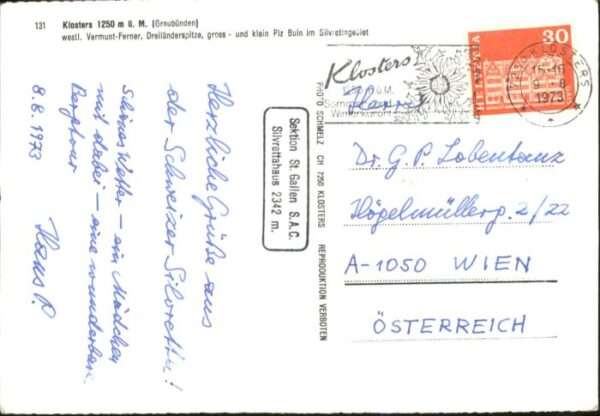 131 Klosters 1250 m ü. M. (Graubünden)
westl. Vermunt-Ferner, Dreiländerspitze, gross - und klein Piz Buin im Silvrettagebiet
Herzliche Grüße aus
der Schweizer Silvretta!
Schönes Wetter – ein Mädchen
mit dabei – eine wunderbare
Bergtour
8.8.1973 Hans P.
Sektion St. Gallen S.A.C.
Silvrettahaus 2342 m.
PHOTO SCHMELZ CH 7250 KLOSTERS REPRODUKTION VERBOTEN
Klosters
HELVETIA 30
KLOSTERS
1973
Dr. G. P. Lobentanz
Högelmüllerg. 2/22
A-1050 WIEN
ÖSTERREICH